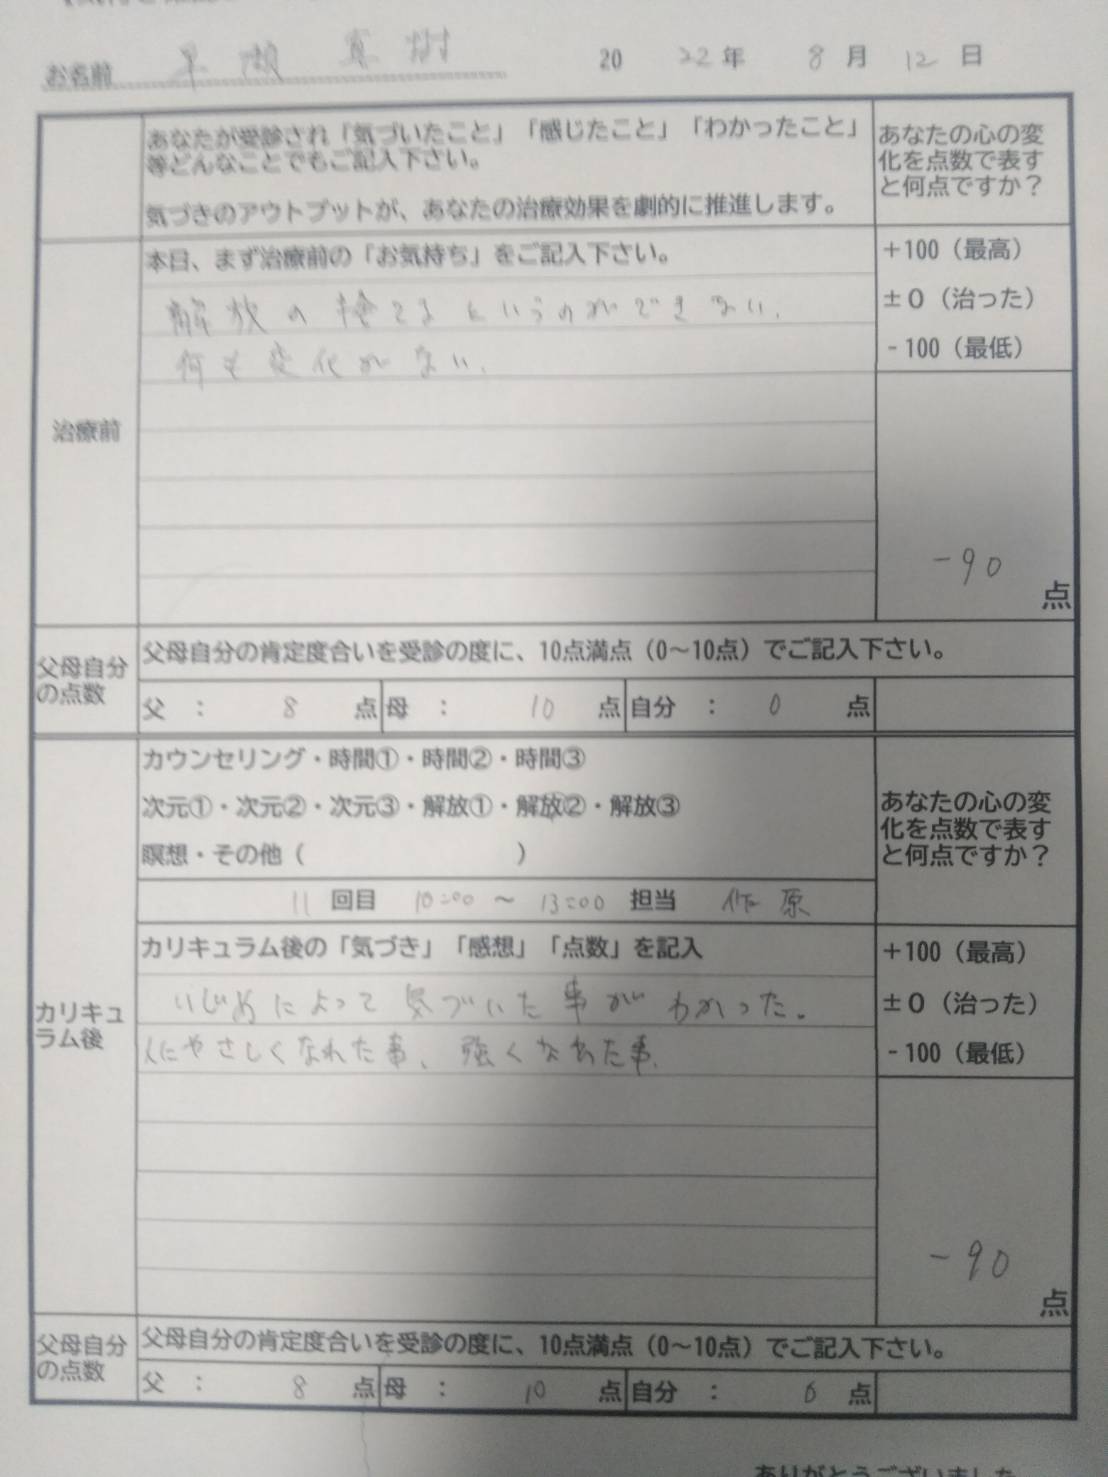 お名前 早瀬 真樹 20 22年 8月 12日
あなたが受診され「気づいたこと」「感じたこと」「わかったこと」
等どんなことでもご記入下さい。
気づきのアウトプットが、あなたの治療効果を劇的に推進します。
あなたの心の変
化を点数で表す
と何点ですか?
治療前
本日、まず治療前の「お気持ち」をご記入下さい。
解放の捨てるというのができない.
何も変化がない.
+100(最高)
±0(治った)
-100(最低)
-90
点
父母自分
の点数
父母自分の肯定度合いを受診の度に、10点満点(0~10点)でご記入下さい。
父 : 8 点 母 : 10 点 自分 : 0 点
カリキュ
ラム後
カウンセリング・時間①・時間②・時間③
次元①・次元②・次元③・解放①・解放②・解放③
瞑想・その他( )
11 回目 10:00 ~ 13:00 担当 作原
あなたの心の変
化を点数で表す
と何点ですか?
カリキュラム後の「気づき」「感想」「点数」を記入
いじめによって気づいた事がわかった。
人にやさしくなれた事、強くなれた事.
+100(最高)
±0(治った)
-100(最低)
-90
点
父母自分
の点数
父母自分の肯定度合いを受診の度に、10点満点(0~10点)でご記入下さい。
父 : 8 点 母 : 10 点 自分 : 0 点
ありがとうございました